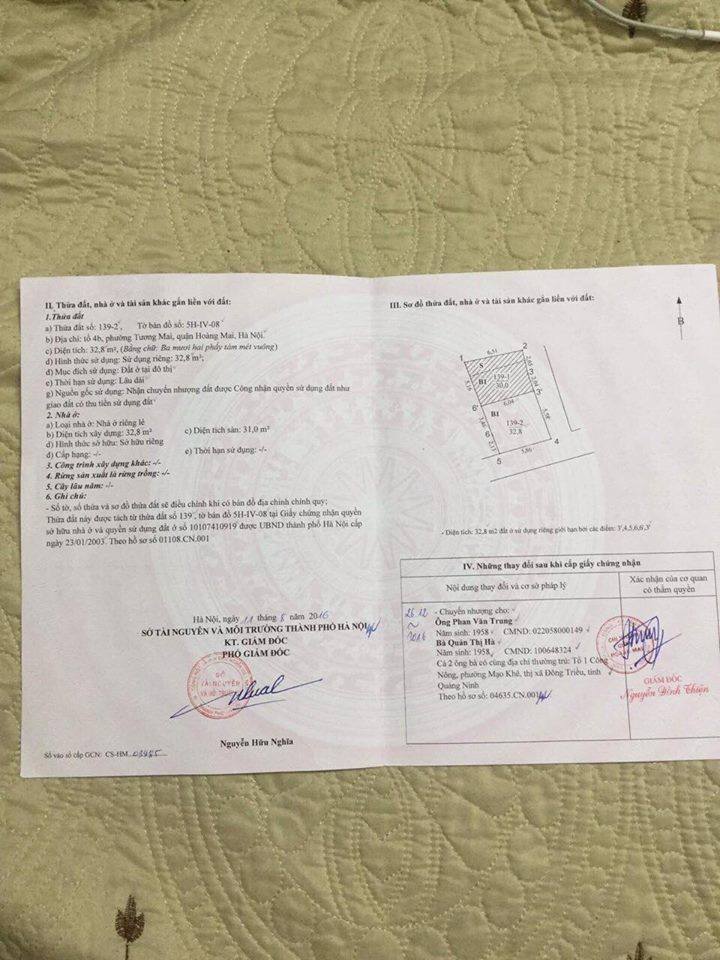 II. Thửa đất, nhà ở và tài sản khác gắn liền với đất:
1.Thửa đất
a) Thửa đất số: 139-2, Tờ bản đồ số: 5H-IV-08
b) Địa chỉ: tổ 4b, phường Tương Mai, quận Hoàng Mai, Hà Nội.
c) Diện tích: 32,8 m², (Bằng chữ: Ba mươi hai phẩy tám mét vuông)
d) Hình thức sử dụng: Sử dụng riêng: 32,8 m²;
đ) Mục đích sử dụng: Đất ở tại đô thị
e) Thời hạn sử dụng: Lâu dài
g) Nguồn gốc sử dụng: Nhận chuyển nhượng đất được Công nhận quyền sử dụng đất như
giao đất có thu tiền sử dụng đất
2. Nhà ở:
a) Loại nhà ở: Nhà ở riêng lẻ
b) Diện tích xây dựng: 32,8 m² c) Diện tích sàn: 31,0 m²
d) Hình thức sở hữu: Sở hữu riêng
đ) Cấp hạng: -/- e) Thời hạn sử dụng: -/-
3. Công trình xây dựng khác: -/-
4. Rừng sản xuất là rừng trồng: -/-
5. Cây lâu năm: -/-
6. Ghi chú:
- Số tờ, số thửa và sơ đồ thửa đất sẽ điều chỉnh khi có bản đồ địa chính chính quy;
Thửa đất này được tách từ thửa đất số 139, tờ bản đồ 5H-IV-08 tại Giấy chứng nhận quyền
sở hữu nhà ở và quyền sử dụng đất ở số 10107410919 được UBND thành phố Hà Nội cấp
ngày 23/01/2003. Theo hồ sơ số 01108.CN.001
Hà Nội, ngày 11 tháng 8 năm 2016
SỞ TÀI NGUYÊN VÀ MÔI TRƯỜNG THÀNH PHỐ HÀ NỘI
KT. GIÁM ĐỐC
PHÓ GIÁM ĐỐC
SỞ
TÀI NGUYÊN
Nguyễn Hữu Nghĩa
Số vào sổ cấp GCN: CS-HM 03485
III. Sơ đồ thửa đất, nhà ở và tài sản khác gắn liền với đất:
B
1
6,51
2
S
2,05
5,16
B1
139-1
30,0
3
2,04
3'
6'
6,04
B1
5,58
2,46
139-2
32,8
6
2,17
4
5
5,86
- Diện tích: 32,8 m2 đất ở sử dụng riêng giới hạn bởi các điểm: 3',4,5,6,6',3'
IV. Những thay đổi sau khi cấp giấy chứng nhận
Nội dung thay đổi và cơ sở pháp lý
Xác nhận của cơ quan
có thẩm quyền
26.12
2016
- Chuyển nhượng cho:
Ông Phan Văn Trung
Năm sinh: 1958 CMND: 022058000149
Bà Quản Thị Hà
Năm sinh: 1958, CMND: 100648324
Cả 2 ông bà có cùng địa chỉ thường trú: Tổ 1 Công
Nông, phường Mạo Khê, thị xã Đông Triều, tỉnh
Quảng Ninh
Theo hồ sơ số: 04635.CN.001
GIÁM ĐỐC
Nguyễn Đình Thiện